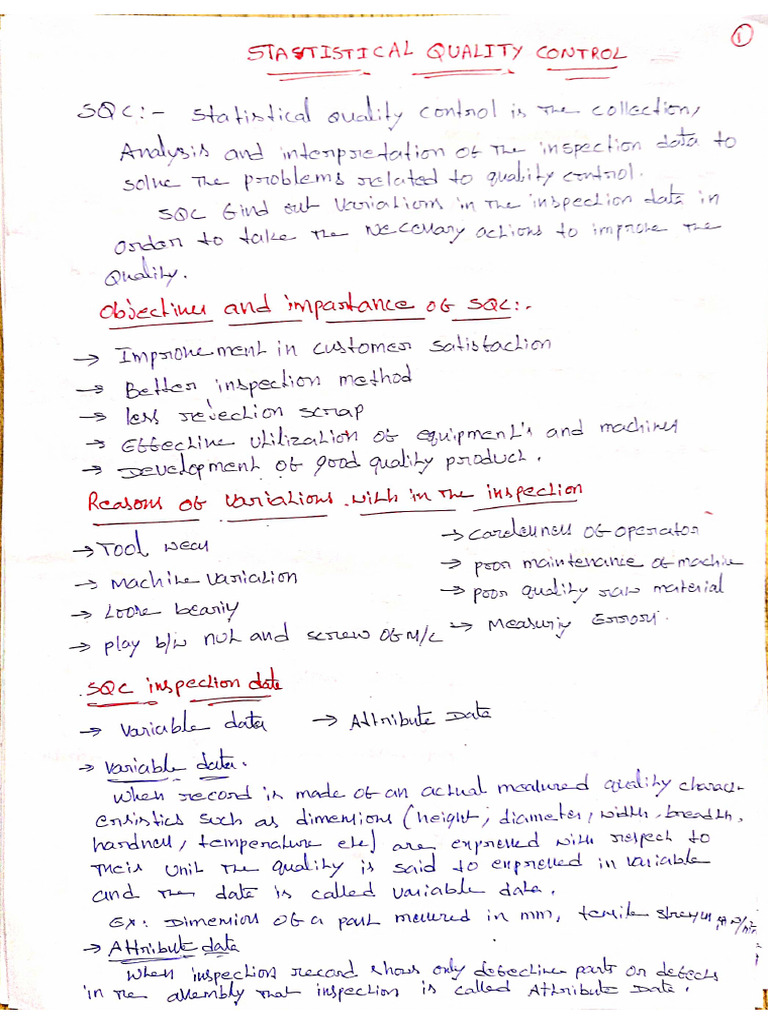 1
STASTISTICAL QUALITY CONTROL
SQC:- Statistical Quality control is the collection,
Analysis and interpretation of the inspection data to
solve the problems related to quality control.
SQC find out variations in the inspection data in
order to take the necessary actions to improve the
Quality.
Objectives and importance of SQC:-
→ Improvement in customer satisfaction
→ Better inspection method
→ less rejection scrap
→ Effective utilization of equipment's and machines
→ Development of good quality product.
Reasons of variations with in the inspection
→ Tool wear
→ Machine variation
→ Loose bearing
→ play b/w nut and screw of M/C
→ Carelessness of operator
→ poor maintenance of machine
→ poor quality raw material
→ Measuring Errors.
SQC inspection date
→ Variable data → Attribute Data
→ Variable data.
When record is made of an actual measured quality charact
eristics such as dimensions (height, diameter, width, breadth,
hardness, temperature etc) are expressed with respect to
their unit the quality is said to expressed in variable
and the date is called variable data.
Ex: Dimension of a part measured in mm, tensile strength in N/m
→ Attribute data
When inspection record shows only defective parts or defects
in the assembly that inspection is called Attribute Data.